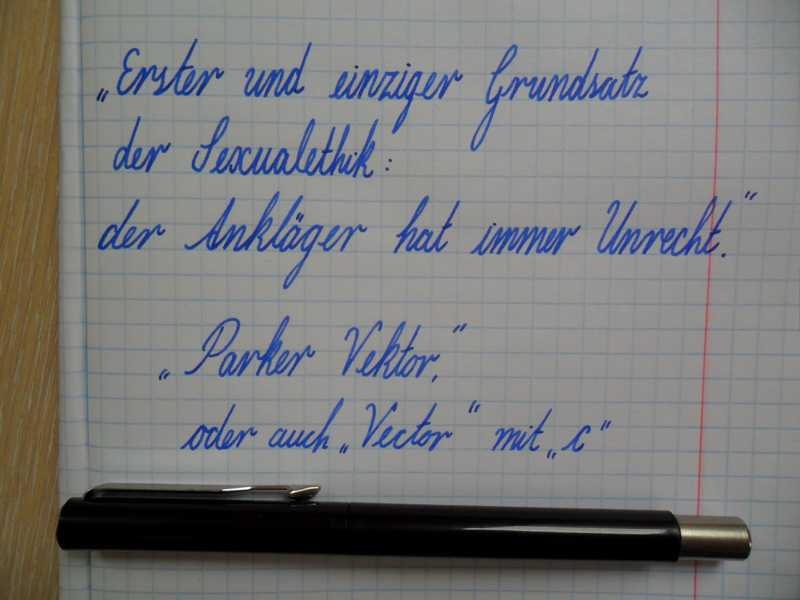 „Erster und einziger Grundsatz
der Sexualethik:
der Ankläger hat immer Unrecht.“
„Parker Vektor,“
oder auch „Vector“ mit „c“